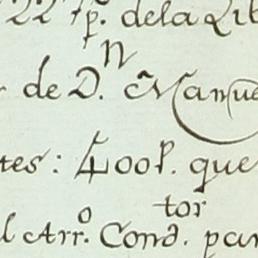 22 fp. dela Lib
de D.n Manue
tes: 400 p. que
l Arr.o Cond.tor par